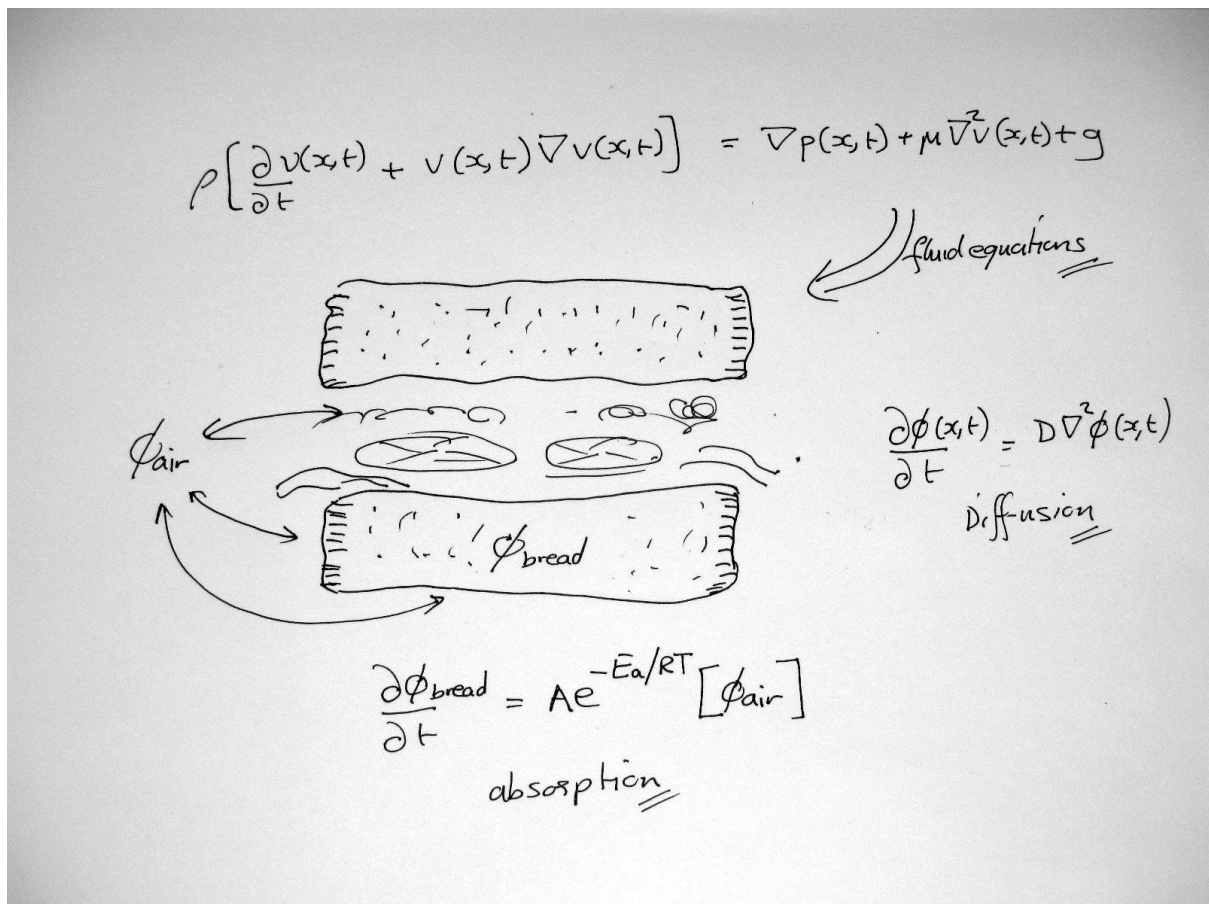 ρ[∂v(x,t)/∂t + v(x,t)∇v(x,t)] = ∇p(x,t)+μ∇²v(x,t)+g
fluid equations
ϕair
∂ϕ(x,t)/∂t = D∇²ϕ(x,t)
Diffusion
ϕbread
∂ϕbread/∂t = Ae^-Ea/RT [ϕair]
absorption